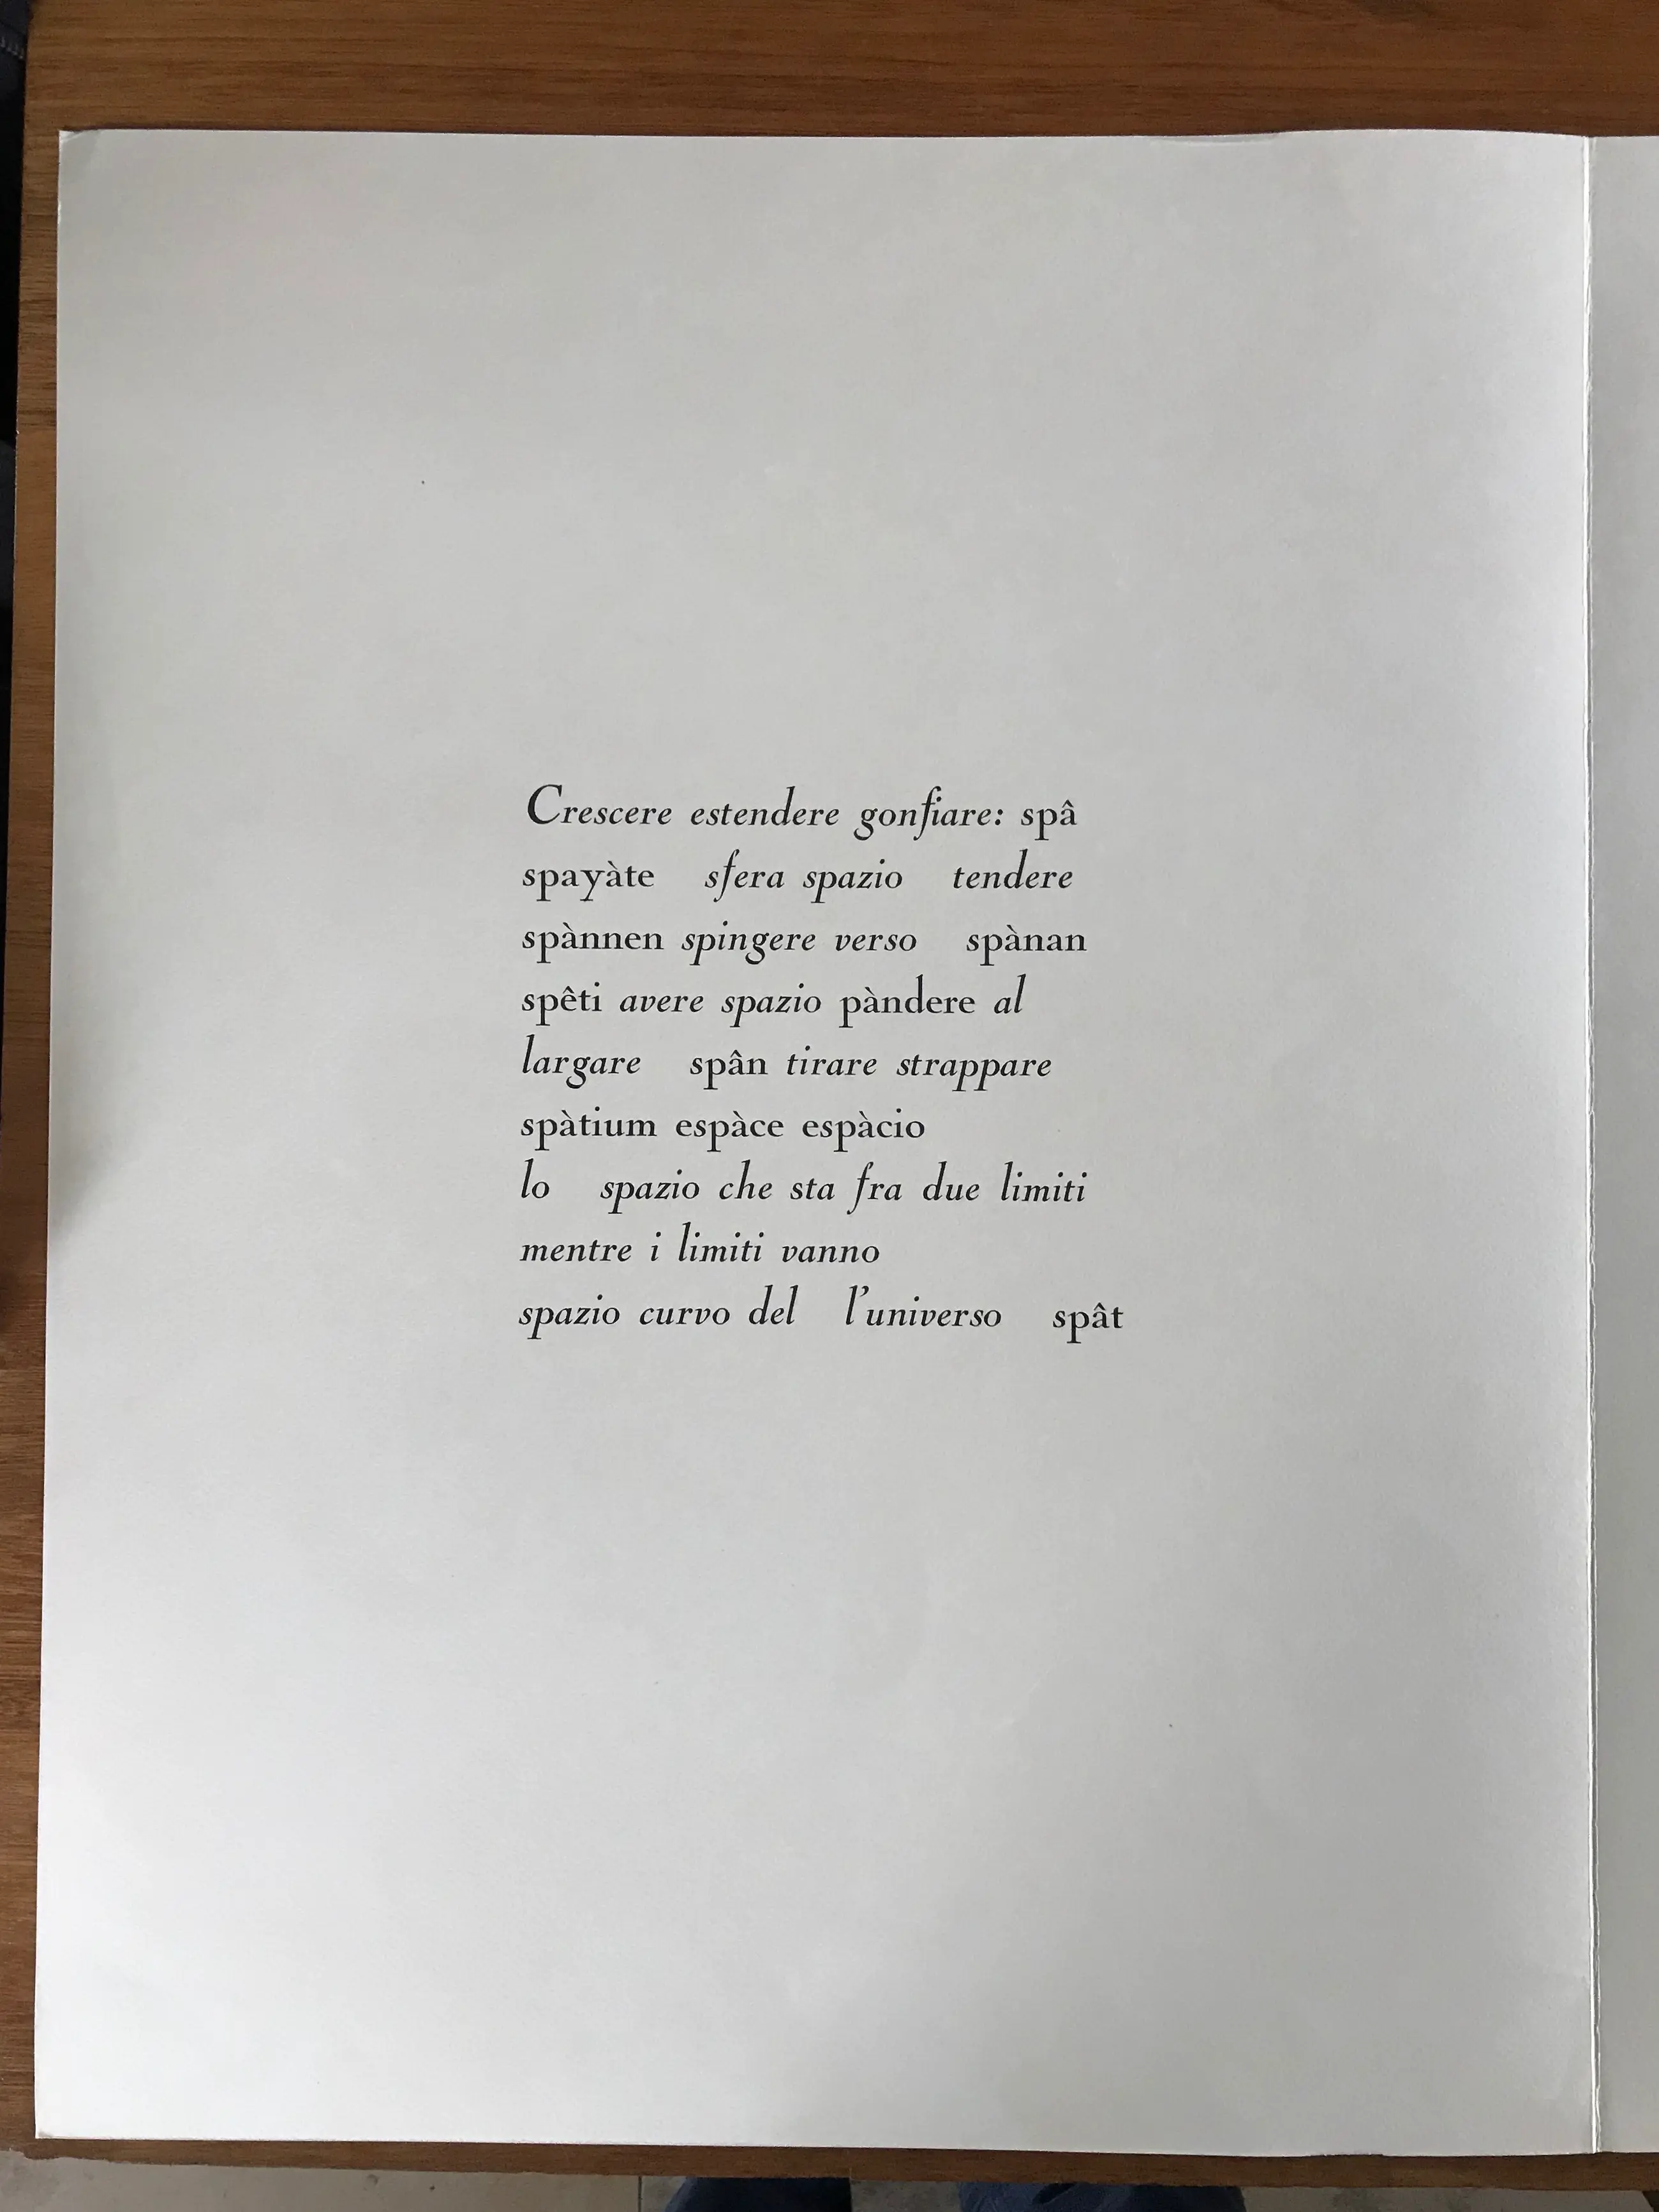 Crescere estendere gonfiare: spâ
spayàte sfera spazio tendere
spànnen spingere verso spànan
spêti avere spazio pàndere al
largare spân tirare strappare
spàtium espàce espàcio
lo spazio che sta fra due limiti
mentre i limiti vanno
spazio curvo del l'universo spât